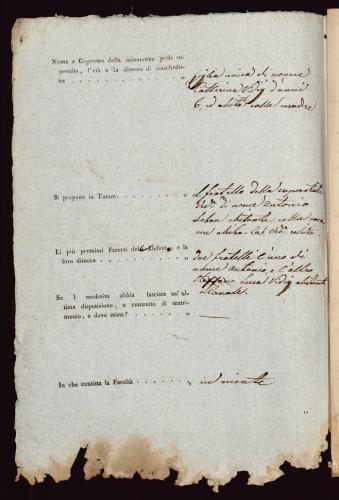 Nome e Cognome della minorenne prole su-
perstite, l'età e la dimora di ciaschedu-
no . . . . . . . . . . . . „
figlia unica di nome
Catterina Vidig d'anni
6, ed abita colla madre
Si propone in Tutore . . . . . . . „
il fratello della
di nome Antonio
abitante nella
Li più prossimi Parenti del Defunto, e la
loro dimora . . . . . . . . . „
due fratelli l'uno di
nome Antonio, e l'altro
Luca Vidig abitanti
Se i medesim abbia lasciata un'ul-
tima disposizione, e contratto di matri-
monio, e dove esista? . . . . . . „ —
In che consista la Facoltà . . . . . . „
in niente